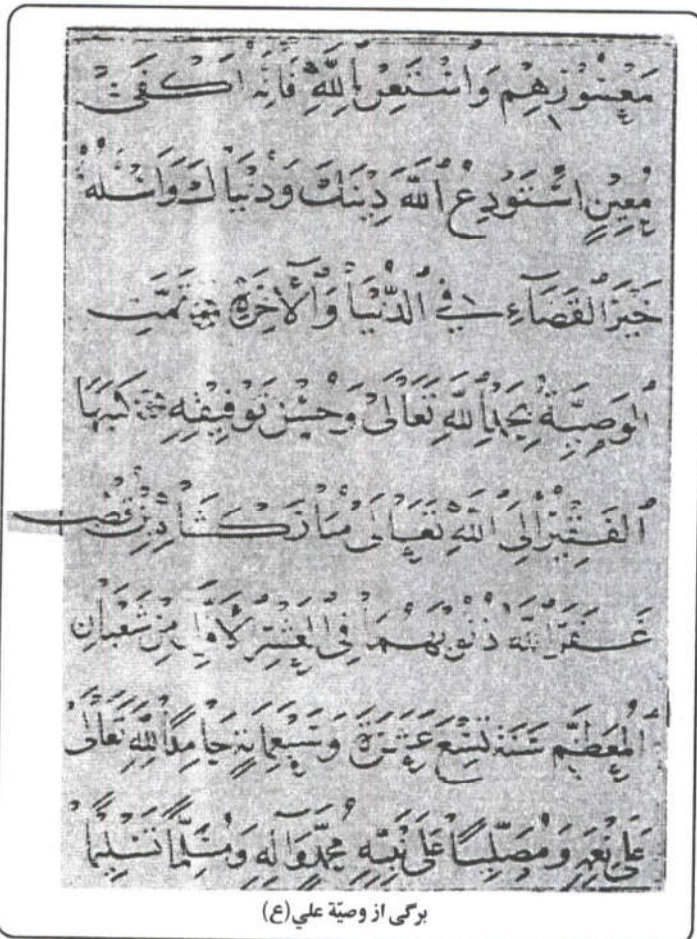 مَعْسُورِهِمْ وَاسْتَعِنْ بِاللّٰهِ فَاِنَّهُ اَكْفَىٰ
مُعِينٍ اسْتَوْدِعُ اللّٰهَ دِينَكَ وَدُنْيَاكَ وَاسْئَلُهُ
خَيْرَ الْقَضَاءِ فِي الدُّنْيَا وَالْاٰخِرَةِ تَمَّتِ
الْوَصِيَّةُ بِحَمْدِ اللّٰهِ تَعَالَىٰ وَحُسْنِ تَوْفِيقِهِ كَتَبَهَا
الْفَقِيرُ اِلَى اللّٰهِ تَعَالَى مُبَارَكْشَاهْ بْنِ قُطْبٍ
غَفَرَ اللّٰهُ ذُنُوبَهُمَا فِي الْعَشْرِ الْاَوَّلِ مِنْ شَعْبَانِ
الْمُعَظَّمِ سَنَةَ تِسْعَ عَشْرَةَ وَسَبْعِمِائَةٍ حَامِدًا لِلّٰهِ تَعَالَىٰ
عَلَىٰ نِعَمِهِ وَمُصَلِّيًا عَلَىٰ نَبِيِّهِ مُحَمَّدٍ وَاٰلِهِ وَمُسَلِّمًا تَسْلِيمًا
برگی از وصیّة علي(ع)